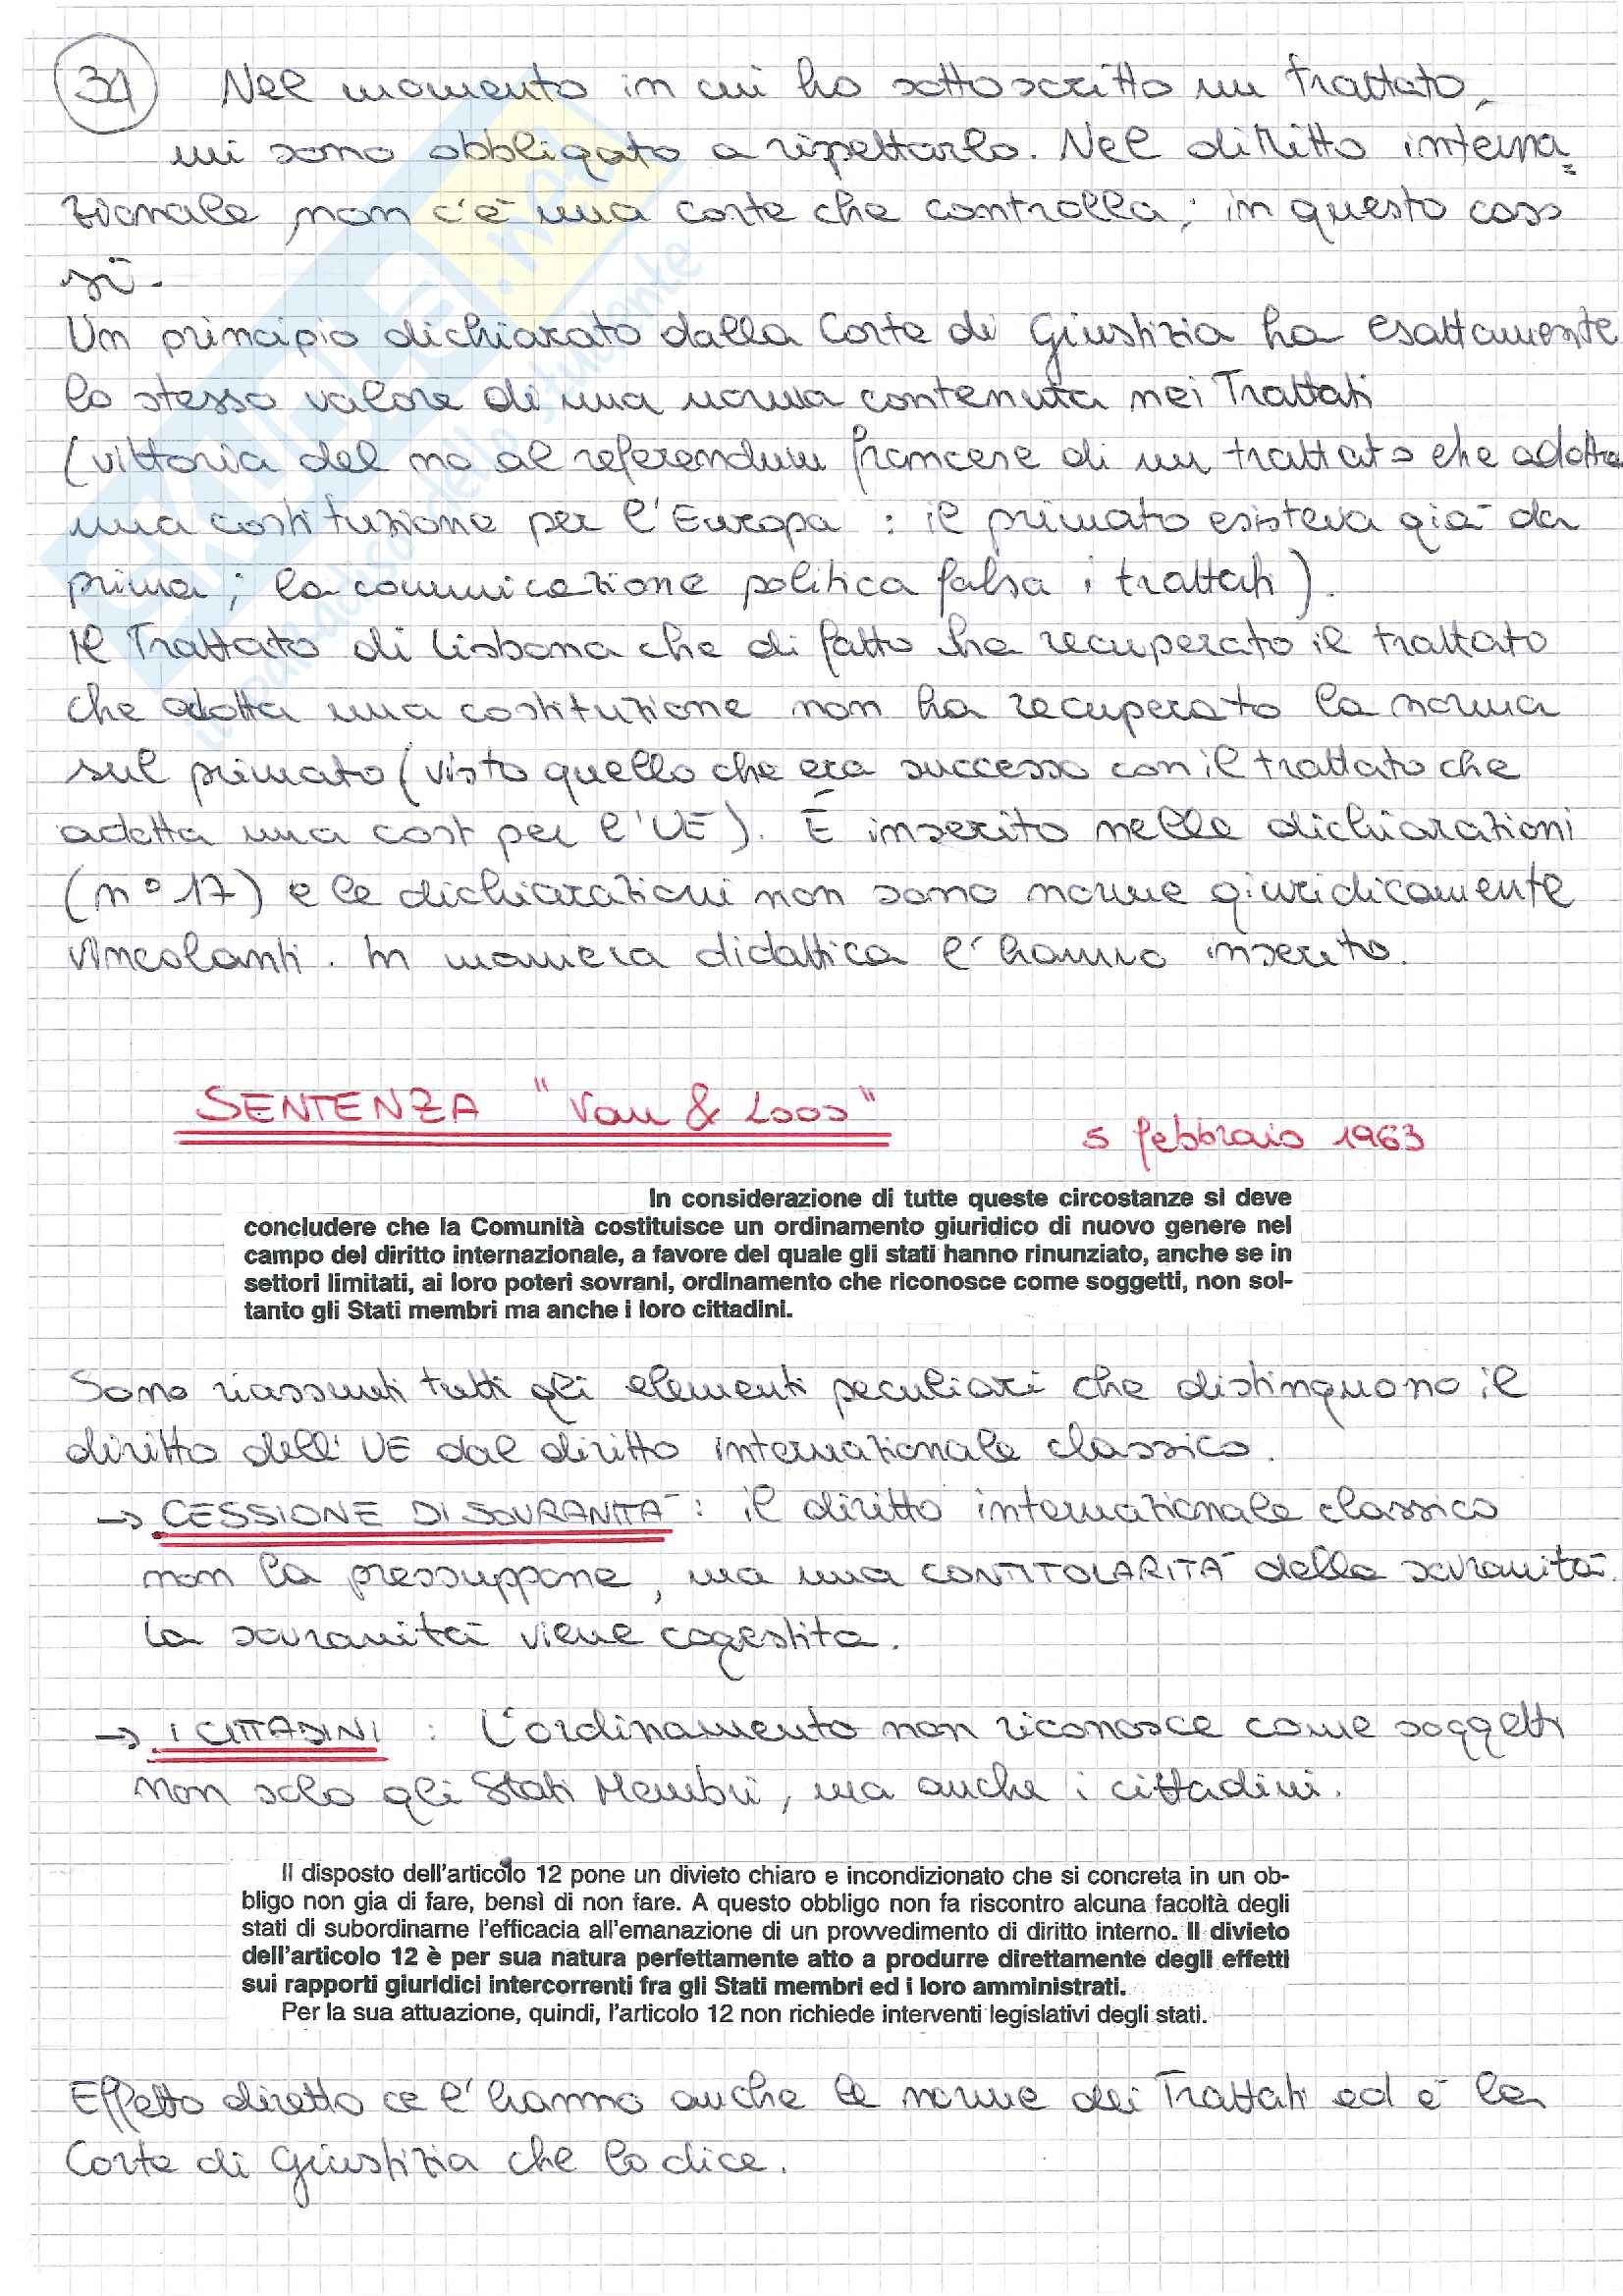 31 Nel momento in cui ho sottoscritto un trattato,
mi sono obbligato a rispettarlo. Nel diritto interna=
zionale non c'è una corte che controlla; in questo caso
sì.
Un principio dichiarato dalla Corte di Giustizia ha esattamente
lo stesso valore di una norma contenuta nei Trattati
(vittoria del no al referendum francese di un trattato che adotta
una costituzione per l'Europa: il primato esisteva già da
prima; la comunicazione politica falsa i trattati).
Il Trattato di Lisbona che di fatto ha recuperato il trattato
che adotta una costituzione non ha recuperato la norma
sul primato (visto quello che era successo con il trattato che
adotta una cost per l'UE). È inserito nelle dichiarazioni
(n° 17) e le dichiarazioni non sono norme giuridicamente
vincolanti. In maniera didattica l'hanno inserito.
SENTENZA "Van & Loos"
5 febbraio 1963
In considerazione di tutte queste circostanze si deve
concludere che la Comunità costituisce un ordinamento giuridico di nuovo genere nel
campo del diritto internazionale, a favore del quale gli stati hanno rinunziato, anche se in
settori limitati, ai loro poteri sovrani, ordinamento che riconosce come soggetti, non sol-
tanto gli Stati membri ma anche i loro cittadini.
Sono riassunti tutti gli elementi peculiari che distinguono il
diritto dell'UE dal diritto internazionale classico.
→ CESSIONE DI SOVRANITÀ: il diritto internazionale classico
non la presuppone, ma una CONTITOLARITÀ della sovranità.
La sovranità viene cogestita.
→ I CITTADINI: L'ordinamento non riconosce come soggetti
non solo gli Stati Membri, ma anche i cittadini.
Il disposto dell'articolo 12 pone un divieto chiaro e incondizionato che si concreta in un ob-
bligo non gia di fare, bensì di non fare. A questo obbligo non fa riscontro alcuna facoltà degli
stati di subordinarne l'efficacia all'emanazione di un provvedimento di diritto interno. Il divieto
dell'articolo 12 è per sua natura perfettamente atto a produrre direttamente degli effetti
sui rapporti giuridici intercorrenti fra gli Stati membri ed i loro amministrati.
Per la sua attuazione, quindi, l'articolo 12 non richiede interventi legislativi degli stati.
Effetto diretto ce l'hanno anche le norme dei Trattati ed è la
Corte di Giustizia che lo dice.